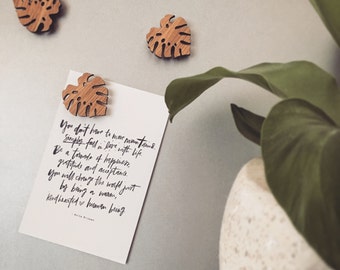 You don't have to move mountains
simply fall in love with life
Be a tornado of happiness,
gratitude and acceptance
You will change the world just
by being a warm,
kind hearted human being